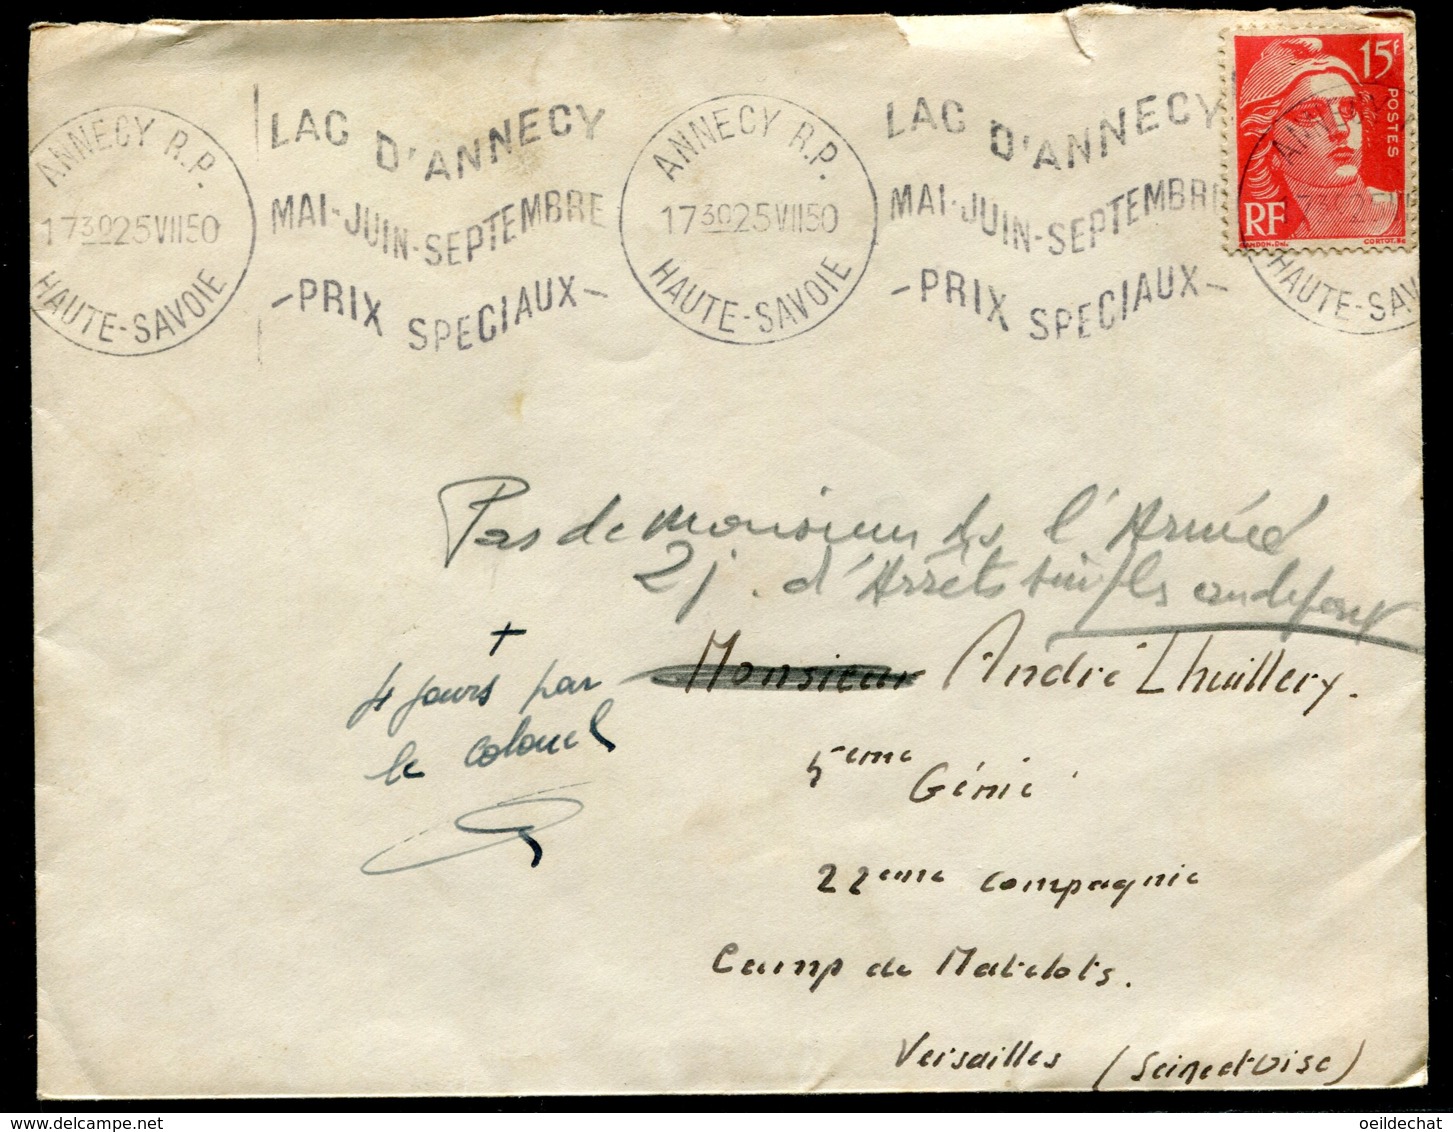 ANNECY R.P.
1730 25 VII 50
HAUTE-SAVOIE
LAC D'ANNECY
MAI-JUIN-SEPTEMBRE
-PRIX SPECIAUX-
ANNECY R.P.
1730 25 VII 50
HAUTE-SAVOIE
LAC D'ANNECY
MAI-JUIN-SEPTEMBRE
-PRIX SPECIAUX-
15F
POSTES
RF
GANDON.Del.
CORTOT.Sc
HAUTE-SAV
Pas de monsieur ds l'Armée
2 j. d'Arrêts simples
+
4 jours par
le colonel
Monsieur André Lhuillery.
5ème Génie
22ème compagnie
Camp de Matelots.
Versailles (Seine et Oise)
oeildechat